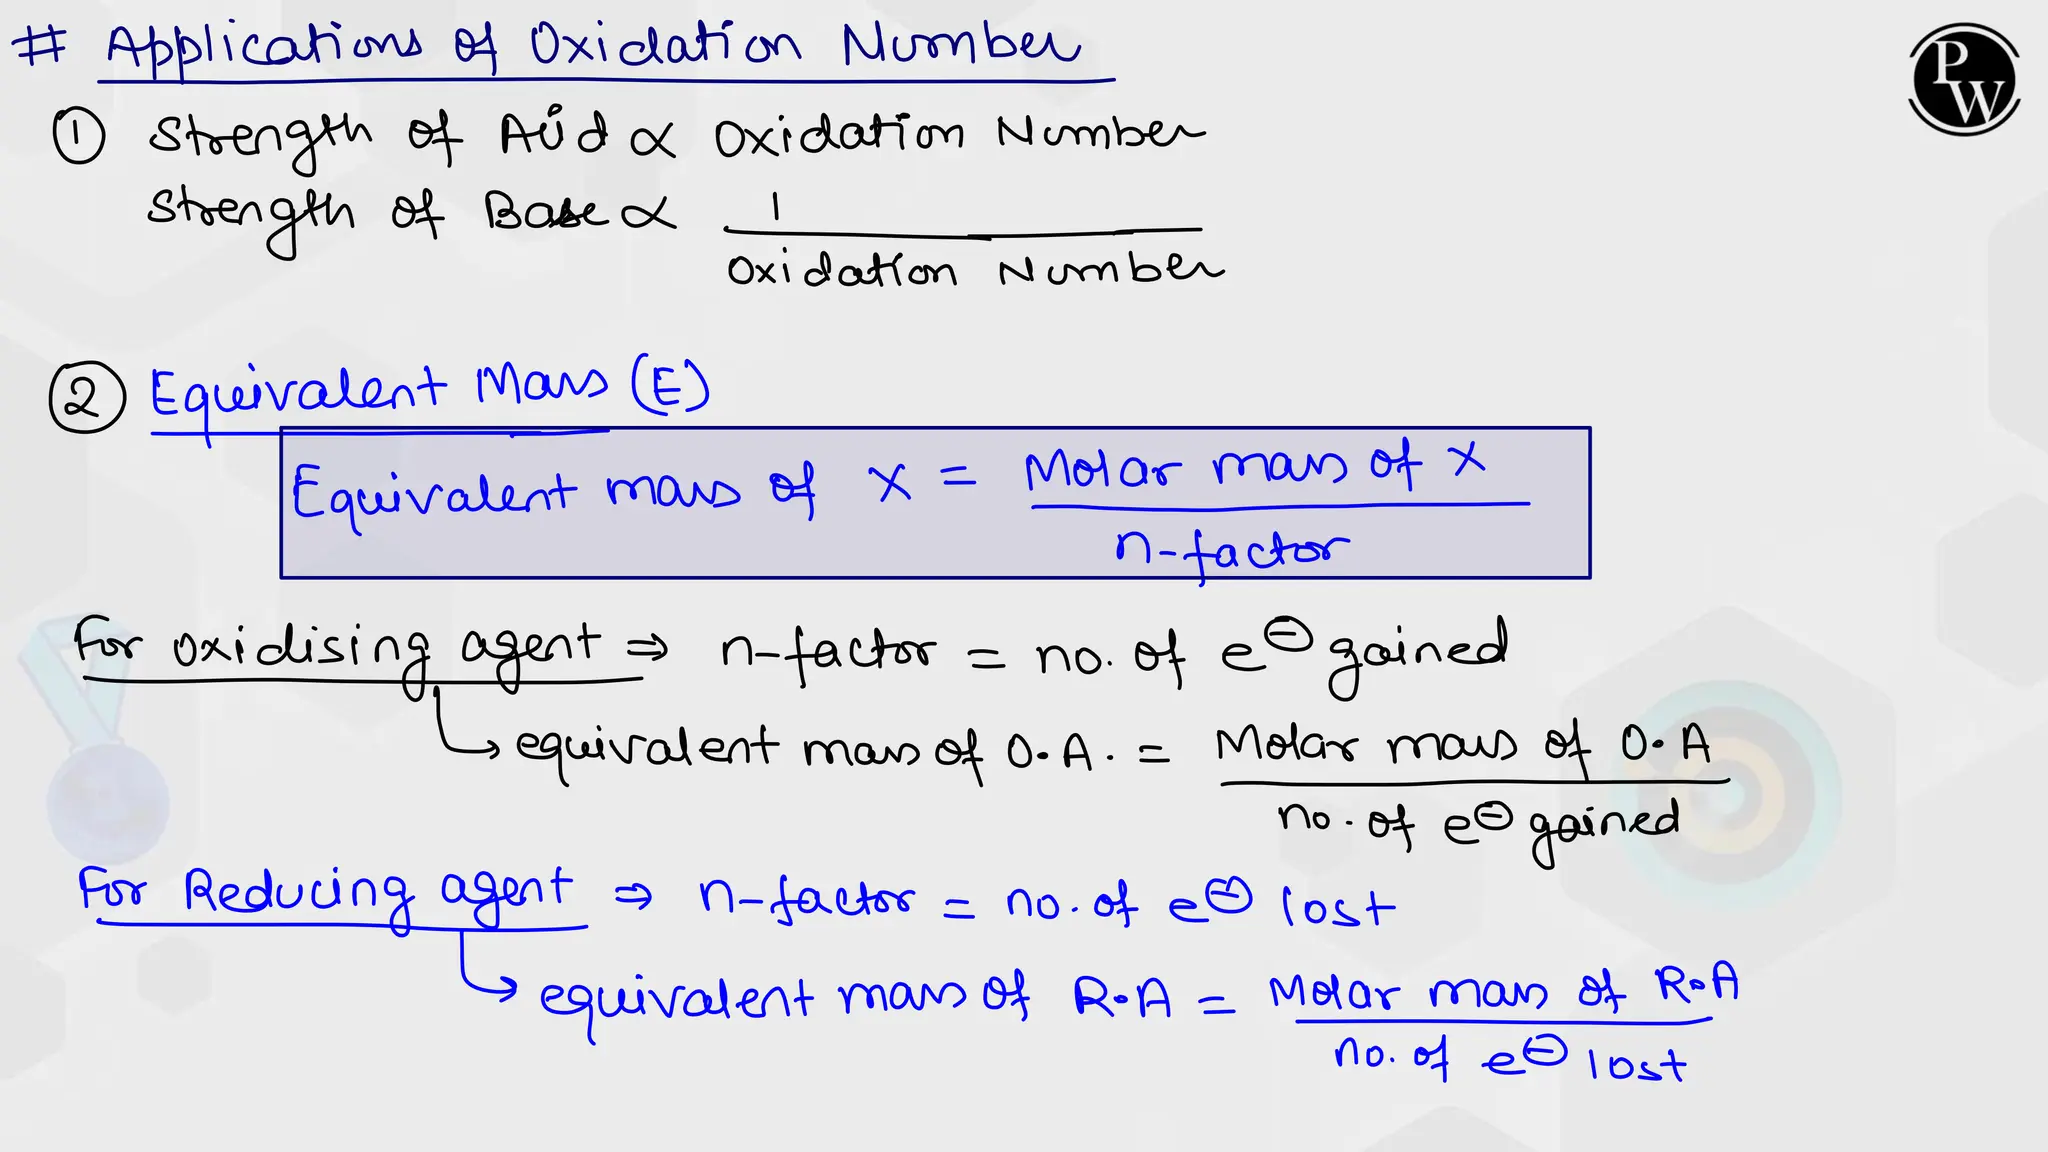 # Applications of Oxidation Number
PW
① Strength of Acid ∝ Oxidation Number
Strength of Base ∝ 1
Oxidation Number
② Equivalent Mass (E)
Equivalent mass of X = Molar mass of X
n-factor
For oxidising agent ⇒ n-factor = no. of e⊖ gained
↳ equivalent mass of O.A. = Molar mass of O.A
no. of e⊖ gained
For Reducing agent ⇒ n-factor = no. of e⊖ lost
↳ equivalent mass of R.A = Molar mass of R.A
no. of e⊖ lost